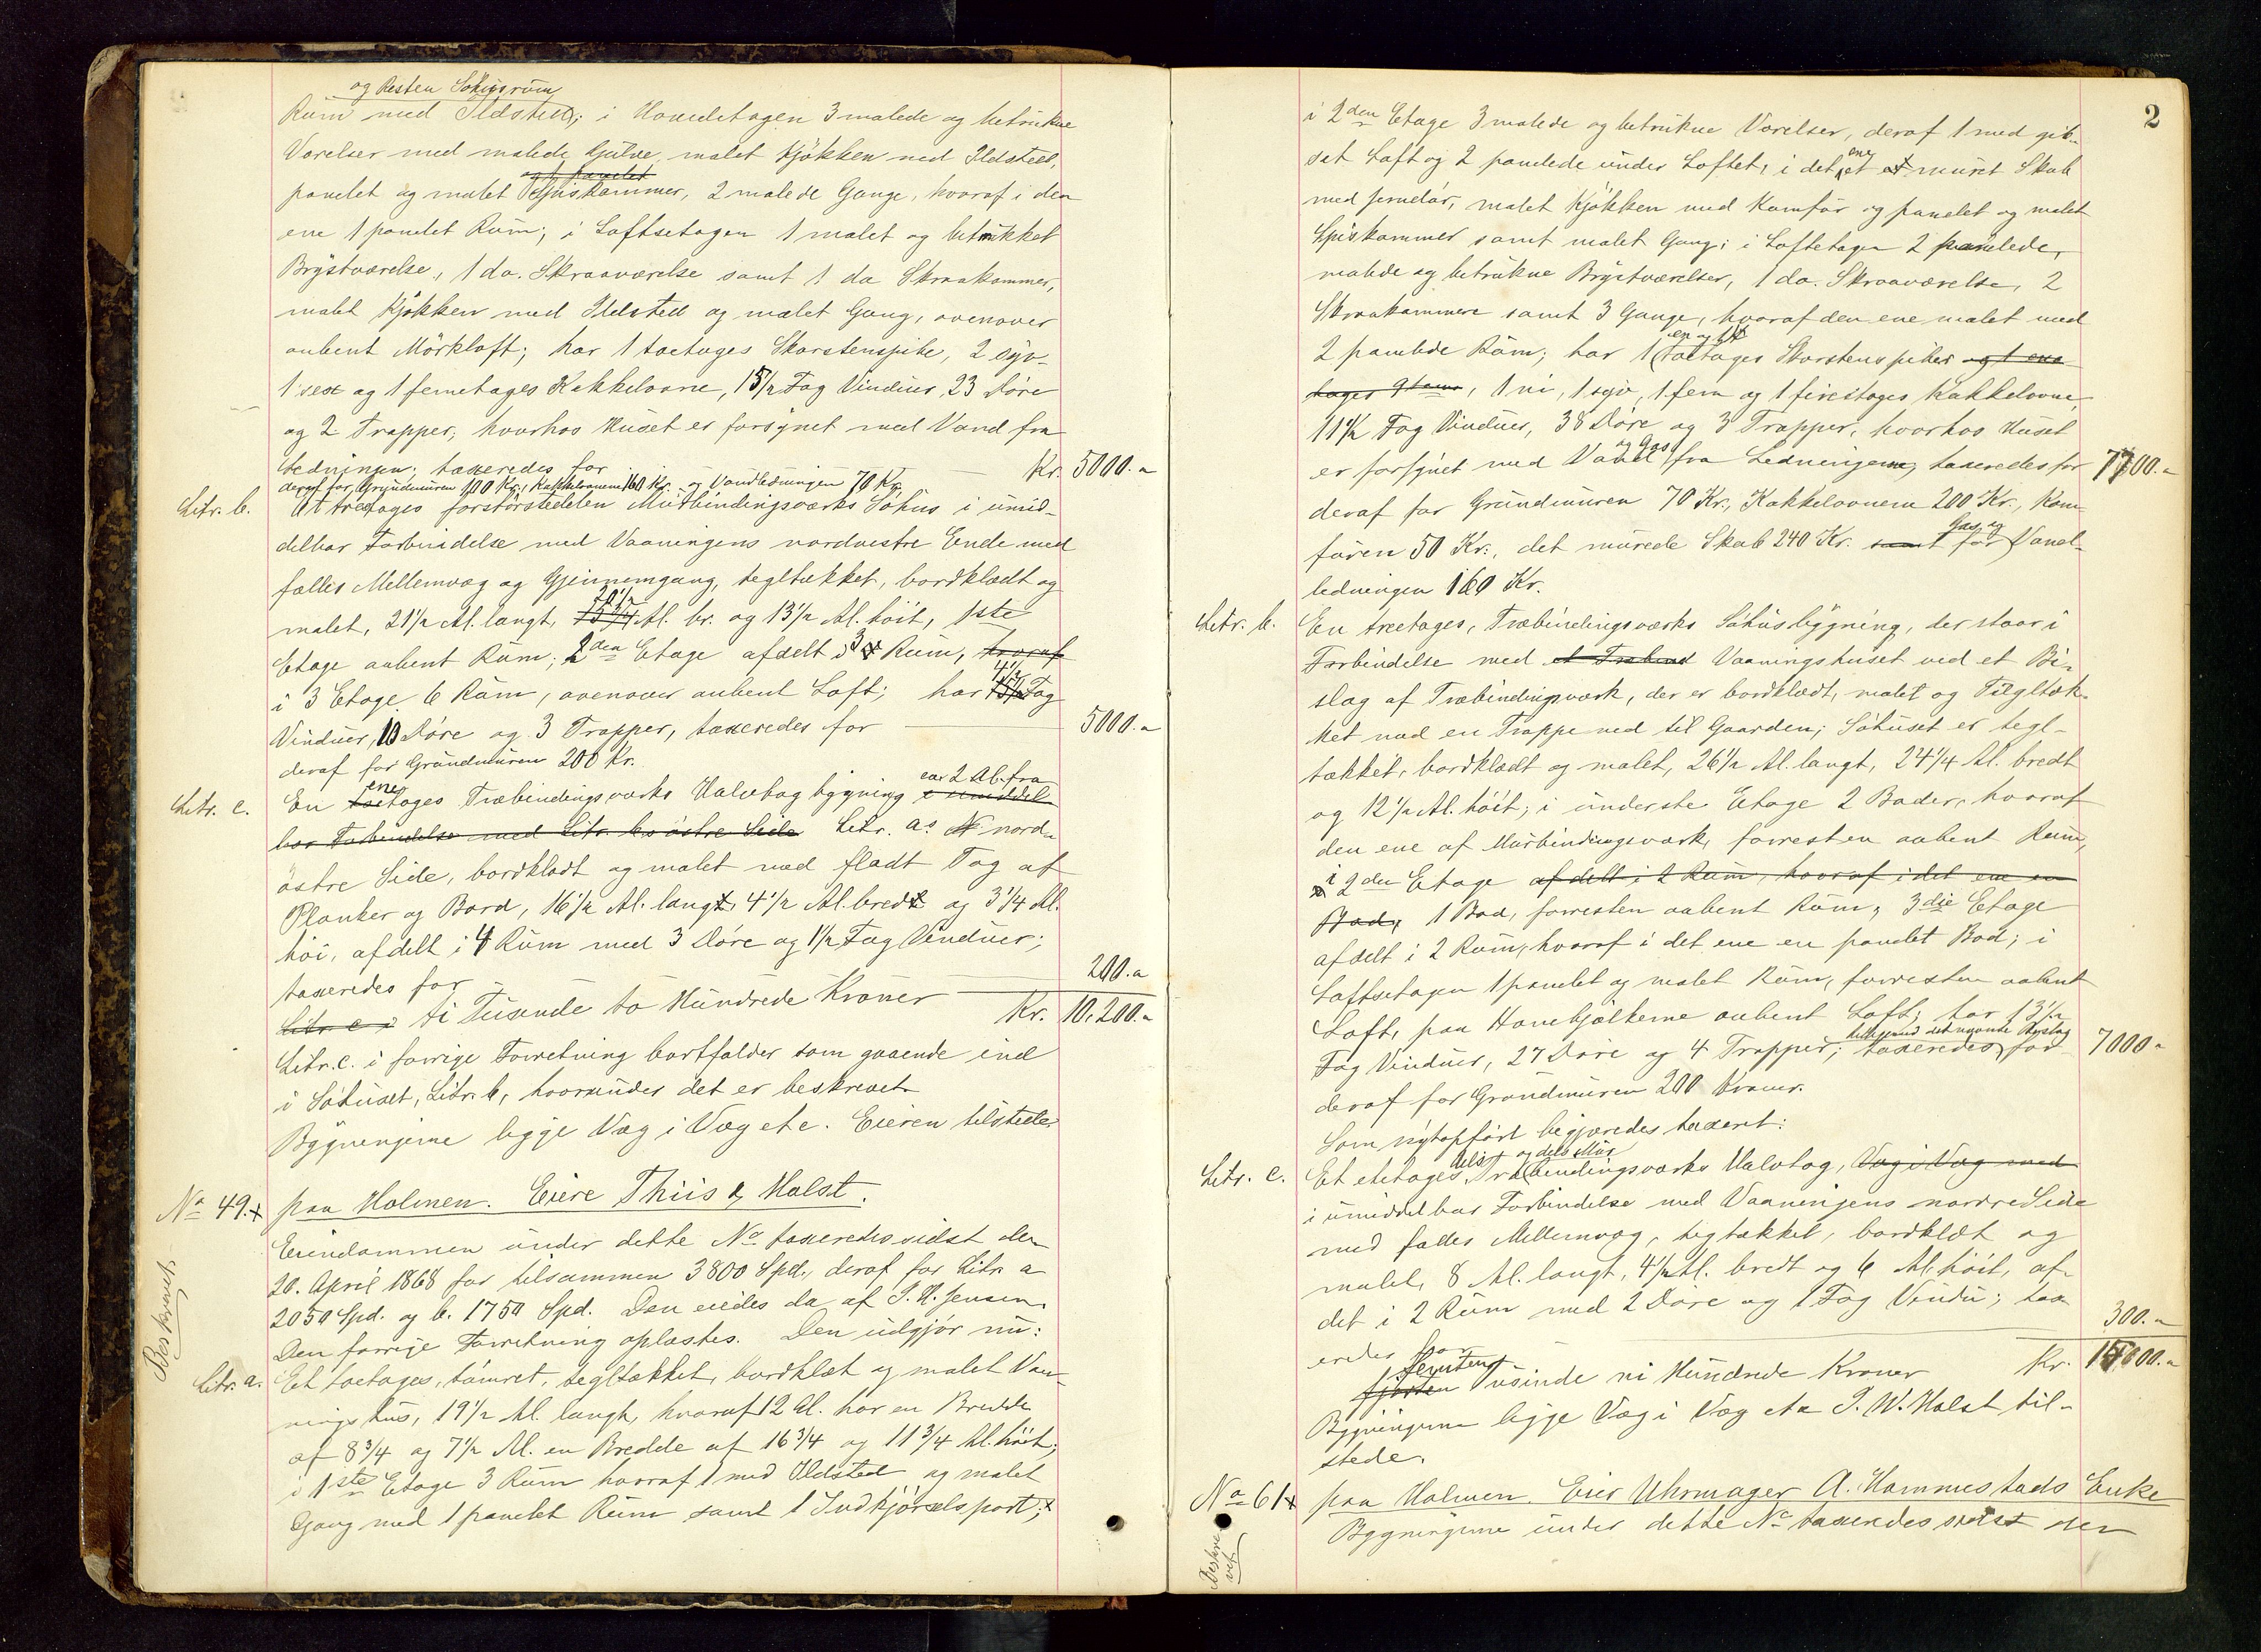 og Resten Söhusrüm
Rüm med Ildsted; i Hovedetagen 3 malede og betrukne
Værelser med malede Gülve, malet Kjökken med Ildsted,
og 1 panelet
panelet og malet Spiskammer, 2 malede Gange, hvoraf i den
ene 1 panelet Rüm; i Loftsetagen 1 malet og betrükket
Brÿstværelse, 1 do. Skraaværelse samt 1 do Skraakammer,
malet Kjökken med Ildsted og malet Gang, ovenover
aabent Mörkloft; har 1 toetages Skorstenspibe, 2 syv-
1 sex og 1 femetages Kakkelovne, 15 1/2 Fag Vindüer, 23 Döre
og 2 Trapper, hvorhos Huset er forsÿnet med Vand fra
Ledningen; taxeredes for Kr. 5000.-
deraf for Gründmuren 100 Kr., Kakkelovnene 160 Kr. og Vandledningen 70 Kr.
Litr. b. Et treetages forstörstedelen Mürbindingsværks Söhüs i umid-
delbar Forbindelse med Vaaningens nordvestre Ende med
fælles Mellemvæg og Gjennemgang, tegltækket, bordklædt og
20 1/2
malet, 21 1/2 Al. langt, 15 3/4 Al. br. og 13 1/2 Al. höit, 1ste
Etage aabent Rüm; 2den Etage afdelt i 3 Rüm, hvoraf
4 1/2
i 3 Etage 6 Rüm, ovenover aabent Loft; har Fag
Vindüer, 10 Döre og 3 Trapper, taxeredes for 5000.-
deraf for Gründmüren 200 Kr.
ene ca 2 Al. fra
Litr. c. En toetages Træbindingsværks Halvtag bygning i umiddel-
bar Forbindelse med Litr. bs östre Side Litr. as nord-
östre Side, bordklædt og malet med fladt Tag af
Planker og Bord, 16 1/2 Al. langt, 4 1/2 Al. bredt og 3 1/4 Al.
höi, afdelt i 4 Rüm med 3 Döre og 1 1/2 Fag Vindüer;
taxeredes for 200.-
Litr. c i ti Tusende to Hündrede Kroner Kr. 10,200.-
Litr. c. i forrige Forretning bortfalder som gaaende ind
i Söhuset, Litr. b, hvorunder det er beskrevet
Bygningerne ligge Væg i Væg etc. Eieren tilstede
No 49.+ paa Holmen. Eiere Thiis & Holst.
Beskrevet.
Eiendommen ünder dette No taxeredes sidst den
20. April 1868 for tilsammen 3800 Spd., deraf for Litr. a
2050 Spd. og b. 1750 Spd. Den eiedes da af J. H. Jensen.
Den forrige Forretning oplæstes. Den üdgjör nü:
Litr. a. Et toetages, tömret, tegltækket, bordklæt og malet Vaa-
ningshüs, 19 1/2 Al. langt, hvoraf 12 Al. har en Bredde
af 8 3/4 og 7 1/2 Al. en Bredde af 16 3/4 og 11 3/4 Al. höit;
i 1ste Etage 3 Rüm hvoraf 1 med Ildsted og malet
Gang med 1 panelet Rüm samt 1 Indkjörselsport;
2
i 2den Etage 3 malede og betrükne Værelser, deraf 1 med gib-
set Loft og 2 panelede ünder Loftet, i det ene et müret Skab
med jerndör, malet Kjökken med Komfür og panelet og malet
Spiskammer samt malet Gang; i Loftetagen 2 panelede,
malede og betrükne Brÿstværelser, 1 do. Skraaværelse, 2
Skraakammere samt 3 Gange, hvoraf den ene malet med
en og 1
2 panelede Rüm; har 1 toetages Skorstenspiber og 1 ene
tages, 1 ni, 1 syv, 1 fem og 1 firetages Kakkelovne,
11 1/2 Fag Vindüer, 38 Döre og 3 Trapper, hvorhos Huset
og Gas
er forsÿnet med Vand fra Ledningerne, taxeredes for 7700.-
deraf for Gründmüren 70 Kr., Kakkelovnene 200 Kr., Kom-
Gas og
füren 50 Kr., det mürede Skab 240 Kr. samt for Vand-
ledningen 160 Kr.
Litr. b. En treetages, Træbindingsværks Söhüsbÿgning, der staar i
Forbindelse med et Træbind Vaaningshuset ved et Bi-
slag af Træbindingsværk, der er bordklædt, malet og Tegltæk-
ket med en Trappe ned til Gaarden; Söhuset er tegl-
tækket, bordklædt og malet, 26 1/2 Al. langt, 24 1/4 Al. bredt
og 12 1/2 Al. höit; i ünderste Etage 2 Boder, hvoraf
den ene af Mürbindingsværk, forresten aabent Rüm,
i 2den Etage afdelt i 2 Rüm, hvoraf i det ene en
Bod, 1 Bod, forresten aabent Rüm, 3die Etage
afdelt i 2 Rüm, hvoraf i det ene en panelet Bod; i
Loftsetagen 1 panelet og malet Rüm, forresten aabent
Loft, paa Hanebjælkerne aabent Loft; har 13 1/2
Fag Vindüer, 27 Döre og 4 Trapper; taxeredes for 7000.-
deraf for Grundmüren 200 Kroner.
Som nÿtopfört begjæredes taxeret:
dels og dels Mür
Litr. c. Et etetages Træbindingsværks Halvtag, Væg i Væg med
i ümiddelbar Forbindelse med Vaaningens nordre Side
med fælles Mellemvæg, tegtækket, bordklæt og
malet, 8 Al. langt, 4 1/2 Al. bredt og 6 Al. höit, af-
det i 2 Rüm med 2 Döre og 1 Fag Vindü; tax-
eredes for 300.-
femten
fjorten Tüsinde ni Hündrede Kroner Kr.
Bygningerne ligge Væg i Væg etc J. W. Holst til-
stede.
No 61+ paa Holmen. Eier Uhrmager A. Hammestads Enke
Beskrevet
Bygningerne ünder dette No taxeredes sidst den